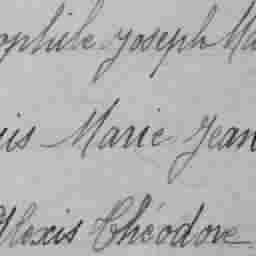 ophile Joseph Ma
uis Marie Jean
Alexis Théodore